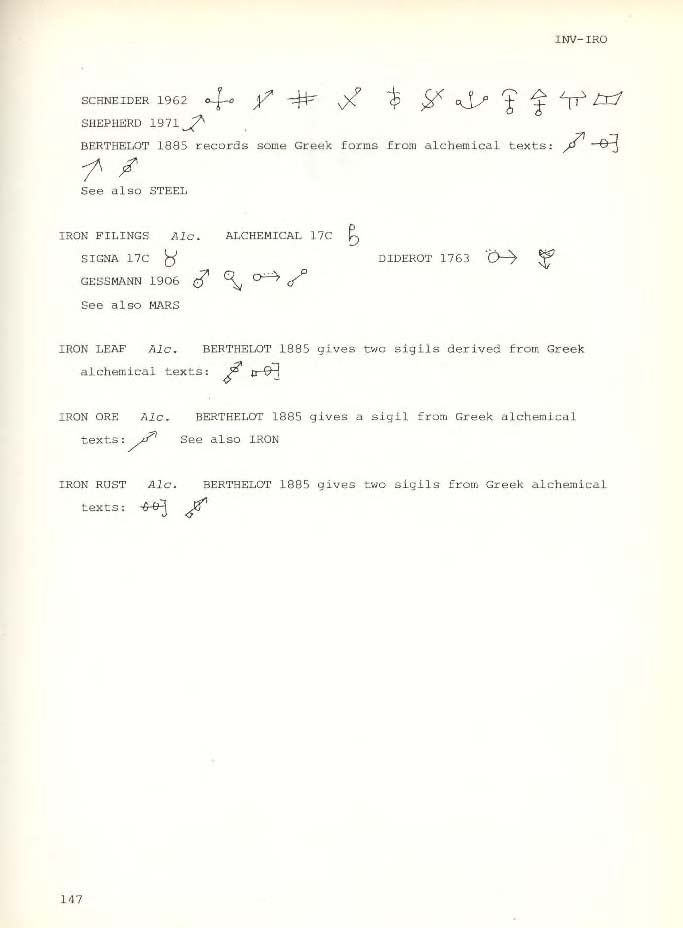 INV-IRO
SCHNEIDER 1962
SHEPHERD 1971
BERTHELOT 1885 records some Greek forms from alchemical texts:
See also STEEL
IRON FILINGS Alc. ALCHEMICAL 17C
SIGNA 17C DIDEROT 1763
GESSMANN 1906
See also MARS
IRON LEAF Alc. BERTHELOT 1885 gives two sigils derived from Greek
alchemical texts:
IRON ORE Alc. BERTHELOT 1885 gives a sigil from Greek alchemical
texts: See also IRON
IRON RUST Alc. BERTHELOT 1885 gives two sigils from Greek alchemical
texts:
147